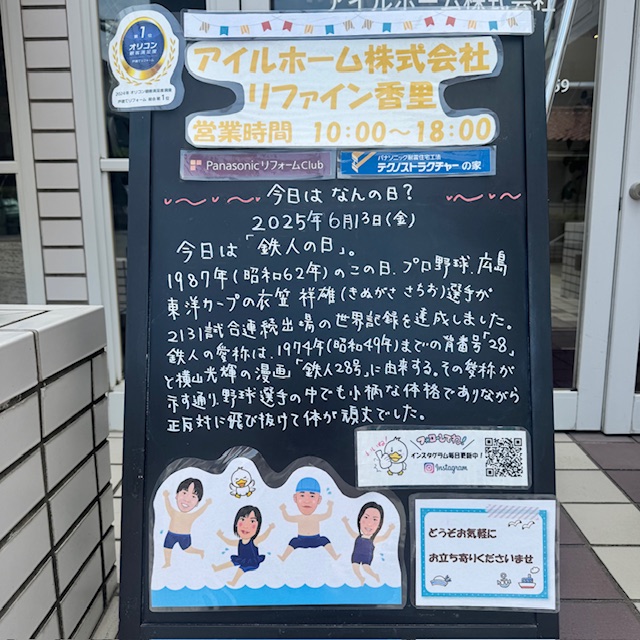 アイルホーム株式会社
第1位
オリコン
顧客満足度
アイルホーム株式会社
リファイン香里
営業時間 10:00〜18:00
Panasonic リフォーム Club
パナソニック耐震住宅工法
テクノストラクチャーの家
今日は なんの日?
2025年6月13日(金)
今日は「鉄人の日」。
1987年(昭和62年)のこの日、プロ野球、広島
東洋カープの衣笠 祥雄(きぬがさ さちお)選手が
2131試合連続出場の世界記録を達成しました。
鉄人の愛称は、1974年(昭和49年)までの背番号「28」
と横山光輝の漫画「鉄人28号」に由来する。その愛称が
示す通り、野球選手の中でも小柄な体格でありながら
正反対に飛び抜けて体が頑丈でした。
フォローしてね!
インスタグラム毎日更新中!
Instagram
どうぞお気軽に
お立ち寄りくださいませ